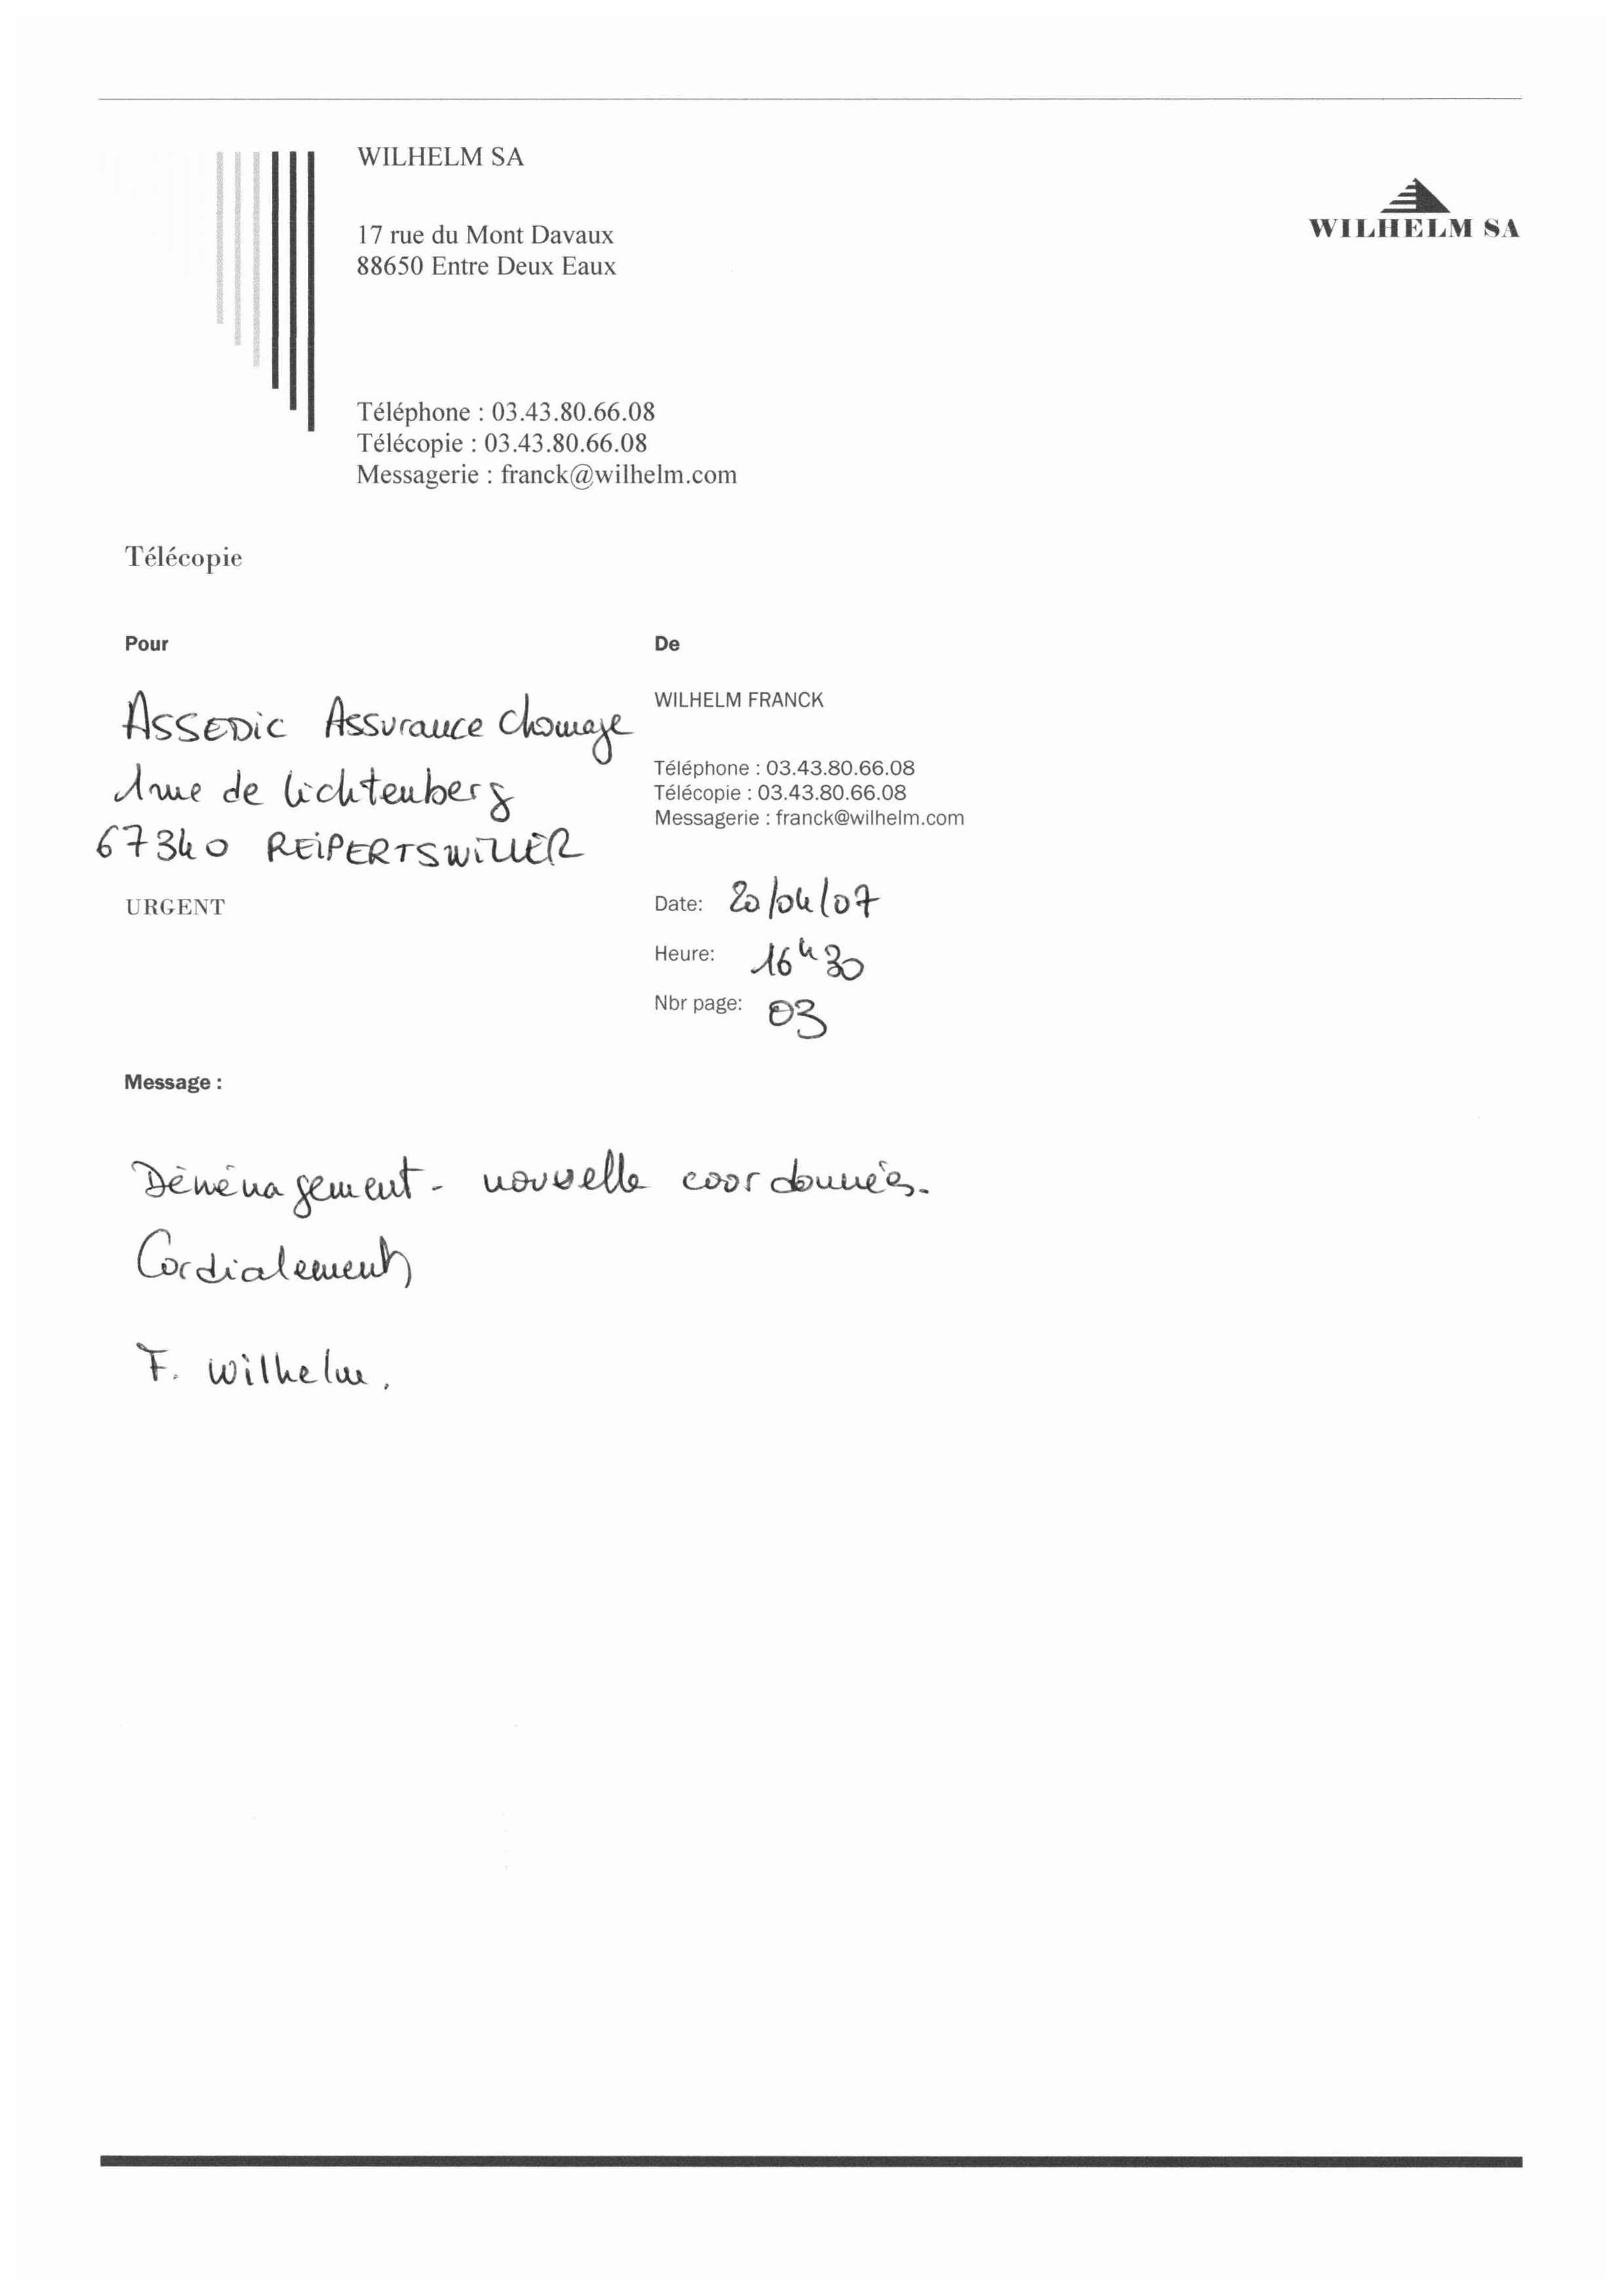 WILHELM SA
17 rue du Mont Davaux
88650 Entre Deux Eaux
WILHELM SA
Téléphone : 03.43.80.66.08
Télécopie : 03.43.80.66.08
Messagerie : franck@wilhelm.com
Télécopie
Pour
Assedic Assurance chomage
1 rue de lichtenberg
67340 REIPERTSWILLER
URGENT
De
WILHELM FRANCK
Téléphone : 03.43.80.66.08
Télécopie : 03.43.80.66.08
Messagerie : franck@wilhelm.com
Date: 20/04/07
Heure: 16h30
Nbr page: 03
Message :
Déménagement - nouvelle coordonnées.
Cordialement
F. Wilhelm.